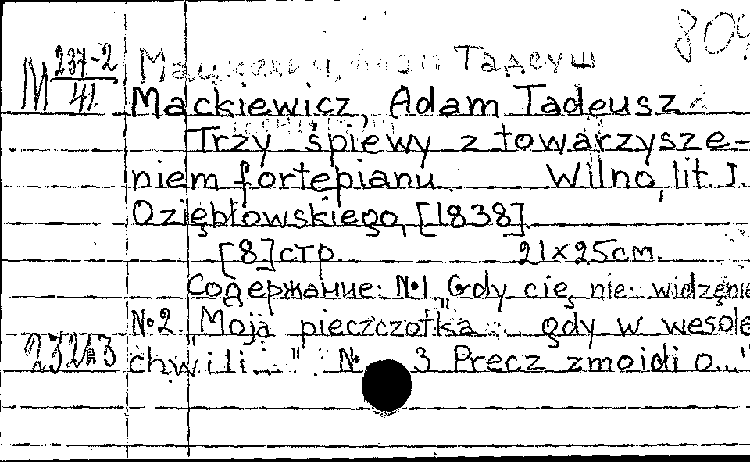 809
М 237-2 Мацкевич, Адам Тадеуш
41 Mackiewicz, Adam Tadeusz
Trzy śpiewy z towarzysze-
niem fortepianu Wilno, lit. J.
Oziębłowskiego, [1838]
[8] стр. 21x25 см.
Содержание: №1 „Gdy cię nie widzę nie
№2 "Moja pieszczotka gdy w wesołe
chwili..." № 3 Precz z moidi o..."